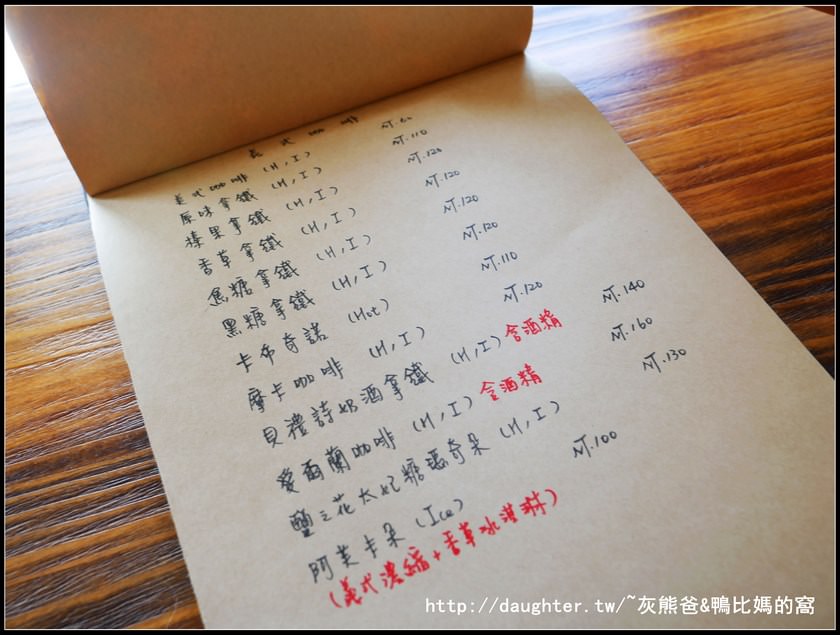 義式咖啡
美式咖啡 (H,I) NT.60
原味拿鐵 (H,I) NT.110
榛果拿鐵 (H,I) NT.120
香草拿鐵 (H,I) NT.120
焦糖拿鐵 (H,I) NT.120
黑糖拿鐵 (H,I) NT.120
卡布奇諾 (Hot) NT.110
摩卡咖啡 (H,I) NT.120
貝禮詩奶酒拿鐵 (H,I) 含酒精 NT.140
愛爾蘭咖啡 (H,I) 含酒精 NT.160
鹽之花太妃糖瑪奇朵 (H,I) NT.130
阿芙卡朵 (Ice) NT.100
(義式濃縮+香草冰淇淋)
http://daughter.tw/~灰熊爸&鴨比媽的窩